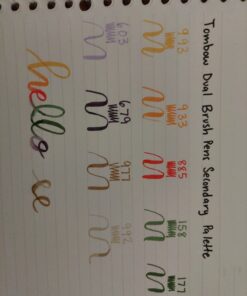 Tombow Dual Brush Pens Secondary Palette
993 933 885 158 177
603 679 977 992
hello se